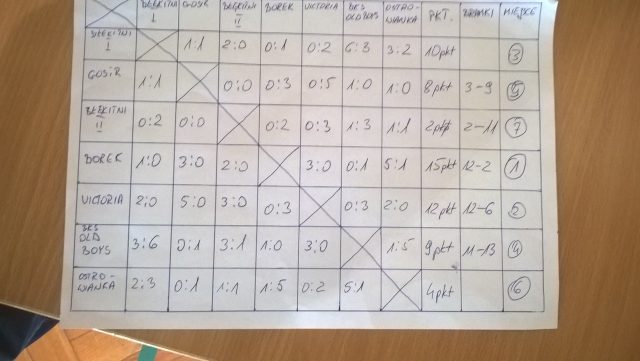 BŁĘKITNI I GOSIR BŁĘKITNI II BOREK VICTORIA BKS OLD BOYS OSTROWIANKA PKT. BRAMKI MIEJSCE
BŁĘKITNI I 1:1 2:0 0:1 0:2 6:3 3:2 10pkt 3
GOSIR 1:1 0:0 0:3 0:5 1:0 1:0 8pkt 3-9 5
BŁĘKITNI II 0:2 0:0 0:2 0:3 1:3 1:1 2pkt 2-11 7
BOREK 1:0 3:0 2:0 3:0 0:1 5:1 15pkt 12-2 1
VICTORIA 2:0 5:0 3:0 0:3 0:3 2:0 12pkt 12-6 2
BKS OLD BOYS 3:6 0:1 3:1 1:0 3:0 1:5 9pkt 11-13 4
OSTRO-WIANKA 2:3 0:1 1:1 1:5 0:2 5:1 4pkt 6